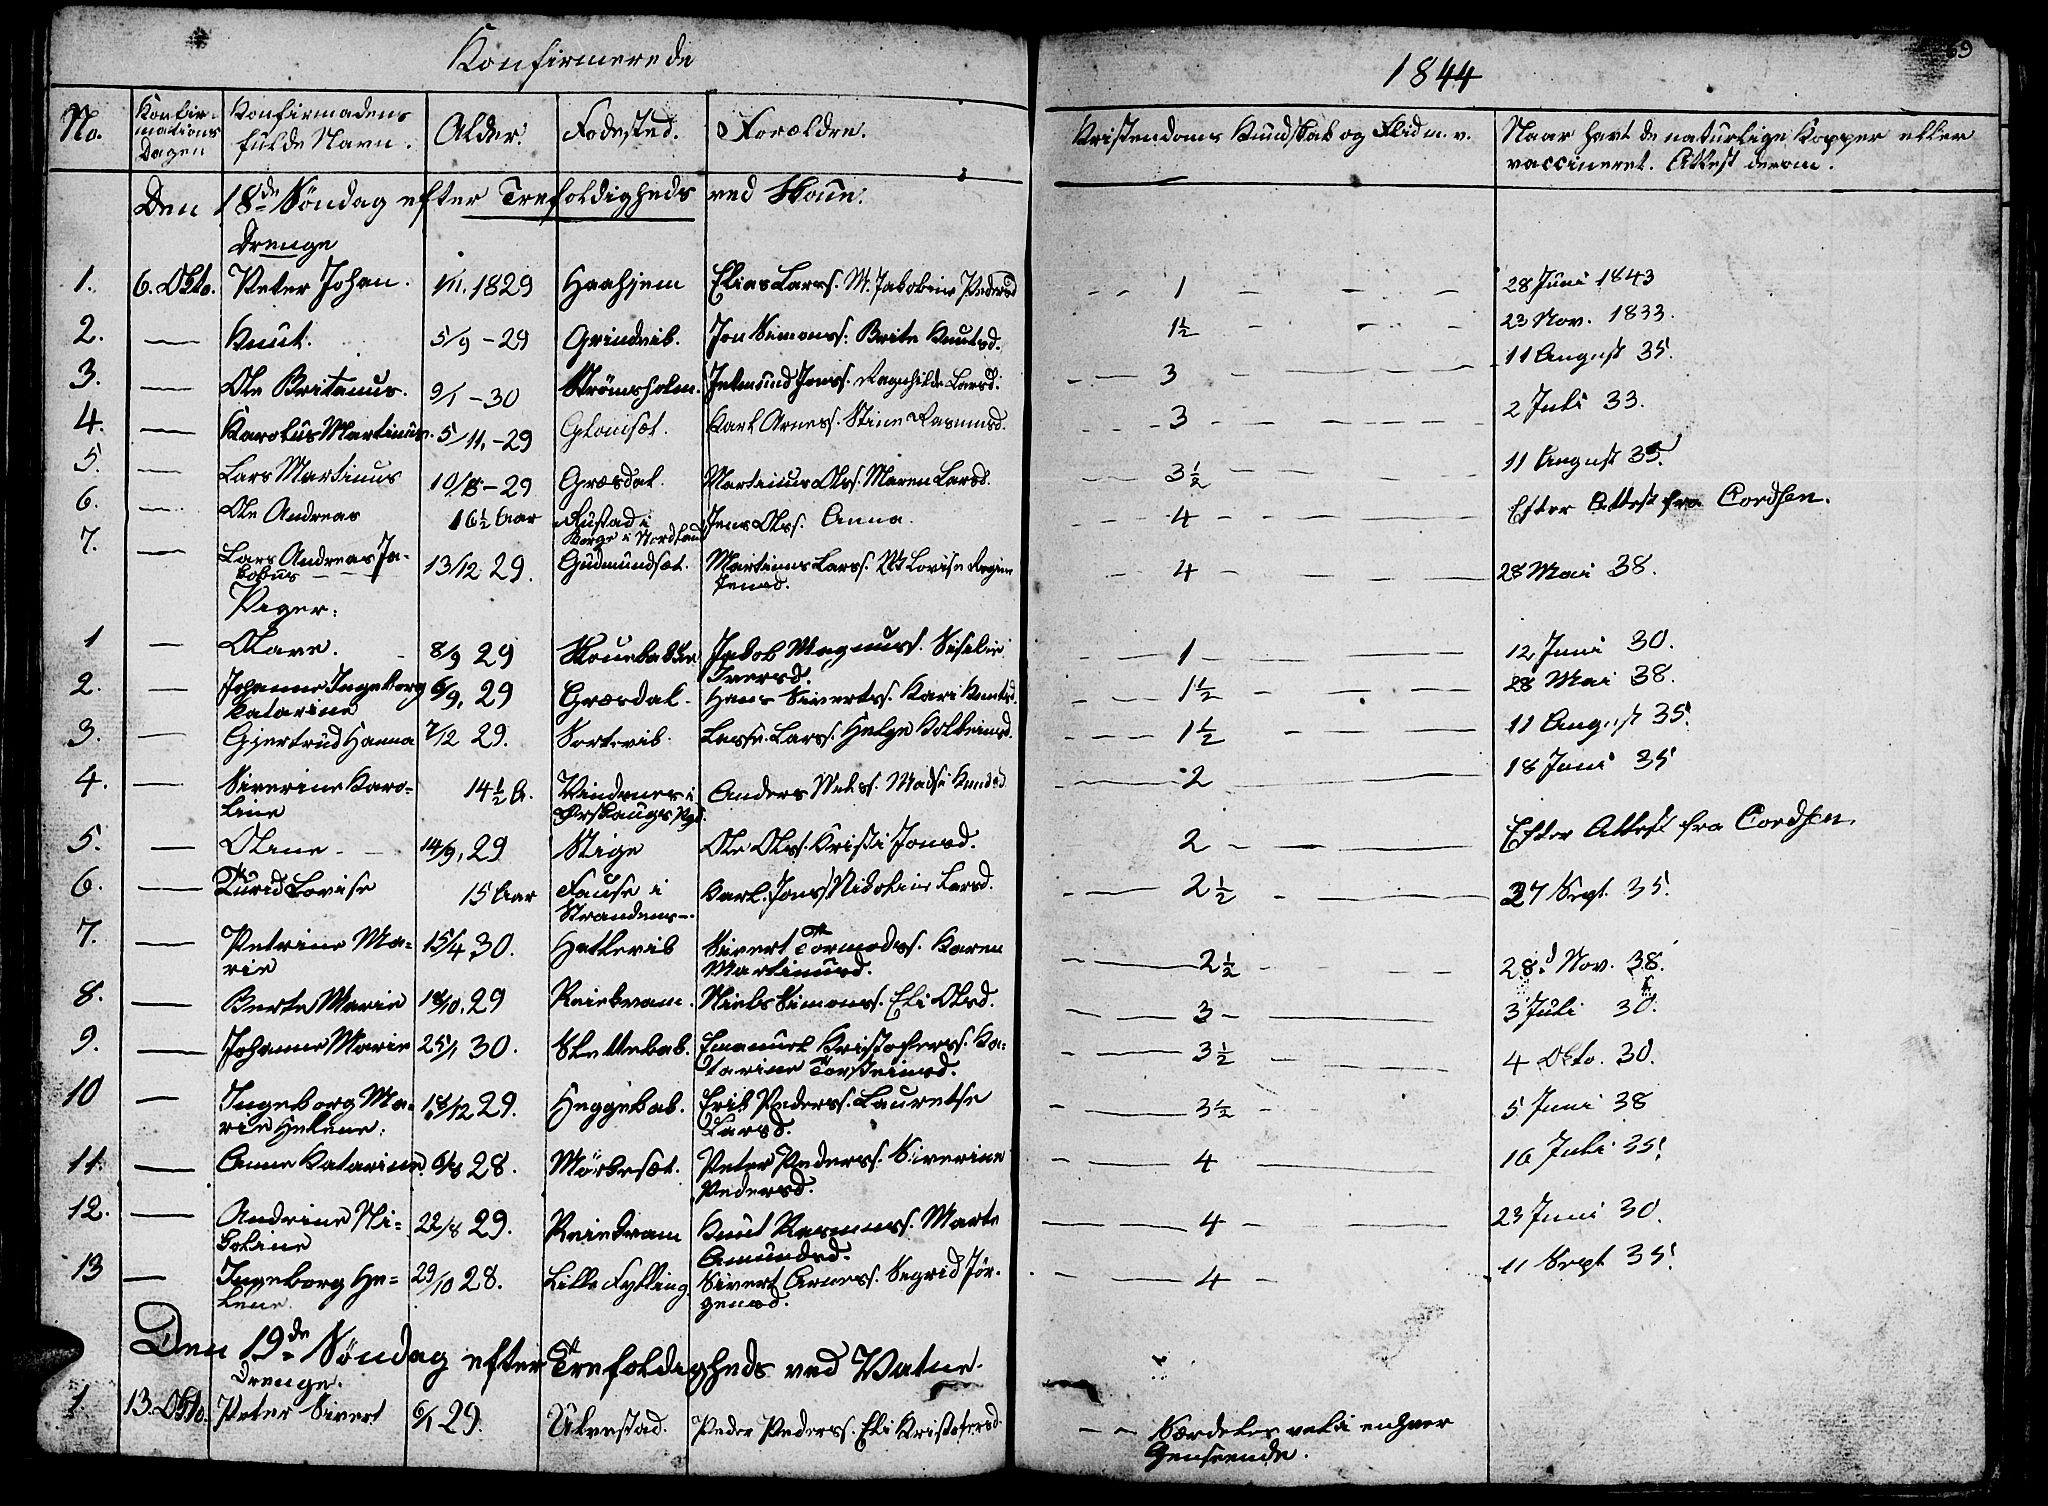 Konfirmerede
1844
69
No.
Konfir-
mations
Dagen
Konfirmadens
fulde Navn.
Alder.
Fødested.
Forældre.
Kristendoms Kundskab og Flid m. v.
Naar havt de naturlige Kopper eller
vaccineret. Attest derom.
Den 18de Søndag efter Trefoldigheds ved Skoue.
Drenge
1. 6. Okto. Peter Johan. 1/11. 1829 Haahjem Elias Larss. M. Jakobine Pedersd 1 28 Juni 1843
2. — Knut. 5/9 - 29 Grindvik. Jon Simonss. Brite Knutsd. 1½ 23 Nov. 1833.
3. — Ole Britanus. 9/1 - 30 Strømsholm. Jetmund Jonss. Ragnhilde Larsd. 3 11 August 35.
4. — Karolus Martinus. 5/11. - 29 Glomset. Karl Arness. Stine Rasmusd. 3 2 Juli 33.
5. — Lars Martinus 10/8 - 29 Græsdal. Martinus Olss. Maren Larsd. 3½ 11 August 35.
6. — Ole Andreas 16½ Aar Rustad i
Borge i Nordland Jens Olss. Anna. 4 Efter Attest fra Cordsen.
7. — Lars Andreas Ja-
kobus 13/12 29. Gudmundset. Martinus Larss. Mt Lovise Regine
Jensd. 4 28 Mai 38.
Piger:
1 — Olave. 8/9 29 Skouebakke Jakob Magnuss. Sisilie
Iversd. 1 12 Juni 30.
2. — Johanne Ingeborg
Katarine 6/9. 29 Græsdal. Hans Sivertss. Kari Knutsd. 1½ 28 Mai 38.
3. — Gjertrud Hanna 7/12 29. Sortevik. Lasse Larss. Helge Kolbeinsd. 1½ 11 August 35.
4. — Siverine Karo-
line 14½ A. Vindenes i
Ørskougs Pgd. Anders Nilss. Madsi Knudsd 2 18 Juni 35
5. — Oline 14/9. 29 Stige Ole Olss. Kristi Jonsd. 2 Efter Attest fra Cordsen.
6. — Turid Lovise 15 Aar Fause i
Strandens —. Karl. Jonss Nikoline Larsd. 2½ 27 Sept. 35.
7. — Petrine Ma-
rie 15/4. 30. Hatlevik Sivert Tormodss. Karen
Martinusd. 2½ 28d Nov. 38.
8. — Berte Marie 18/10. 29 Reiekvam. Niels Simonss. Eli Olsd. 3 3 Juli 30.
9. — Johanne Marie 25/1 30. Slettebak. Emanuel Kristoferss. Ka-
tarine Torsteinsd. 3½ 4 Okto. 30.
10 — Ingeborg Ma-
rie Helene. 18/12 29. Heggebak. Erik Pederss. Lauretse
Larsd. 3½ 5 Juni 38
11. — Anne Katarine. 6/8 28. Mørkeset. Peter Pederss. Siverine
Pedersd. 4 16 Juli 35.
12. — Andrine Ni-
koline 22/8 29. Reiekvam Knut Rasmuss. Marte
Amundsd. 4 23 Juni 30.
13 — Ingeborg He-
lene. 29/10 28. Lille Fylling Sivert Arness. Segrid Jør-
gensd. 4 11 Sept 35.
Den 19de Søndag efter Trefoldigheds ved Vatne.
Drenge.
1 13. Okto. Peter Sivert 6/1 29. Ulvestad. Peder Pederss. Eli Kristofersd. Særdeles vel i enhver
Henseende.